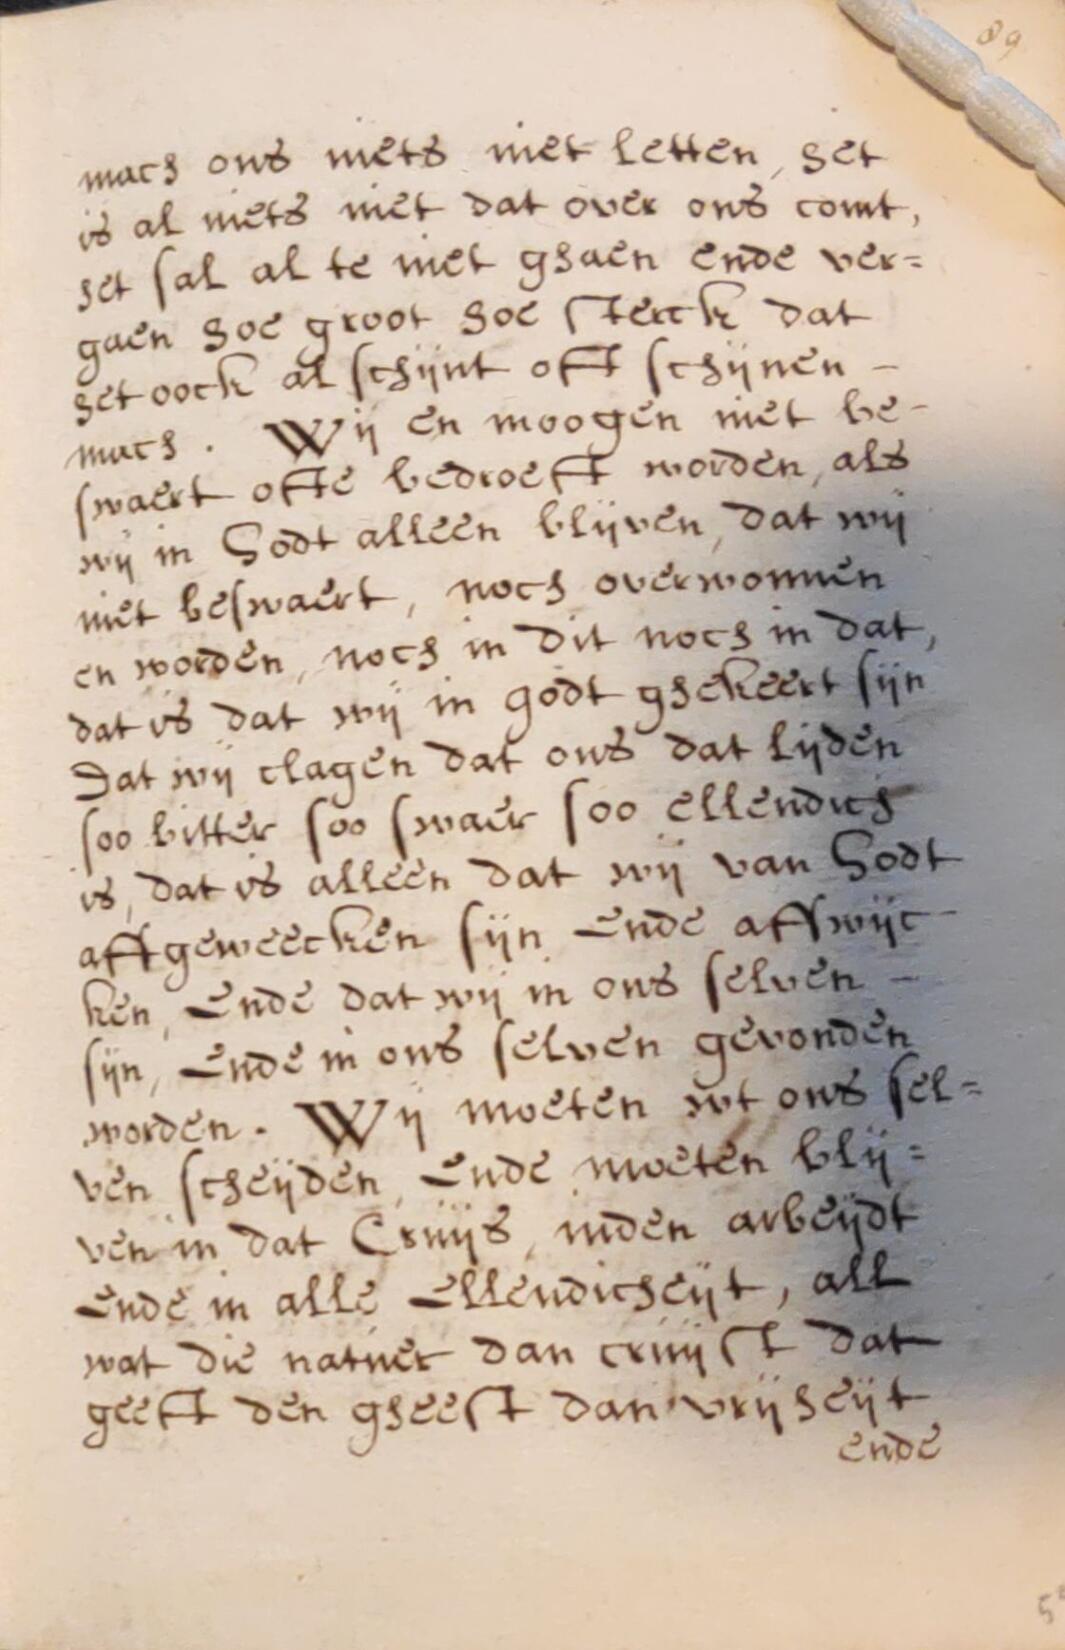 89
mach ons niets niet letten, het
is al niets niet dat over ons comt,
het sal al te niet ghaen ende ver=
gaen hoe groot hoe sterck dat
het oock al schijnt oft schijnen -
mach. Wij en moogen niet be-
swaert ofte bedroeft worden, als
wij in Godt alleen blijven, dat wij
niet beswaert, noch overwonnen
en worden, noch in dit noch in dat,
dat is dat wij in godt ghekeert sijn
Dat wij clagen dat ons dat lijden
soo bitter soo swaer soo ellendich
is, dat is alleen dat wij van Godt
affgeweecken sijn Ende affwijc-
ken, Ende dat wij in ons selven -
sijn, Ende in ons selven gevonden
worden. Wij moeten wt ons sel=
ven scheijden, Ende moeten blij=
ven in dat Cruijs, inden arbeijdt
Ende in alle Ellendicheijt, all
wat die natuer dan cruijst dat
geeft den gheest dan vrijheijt
ende